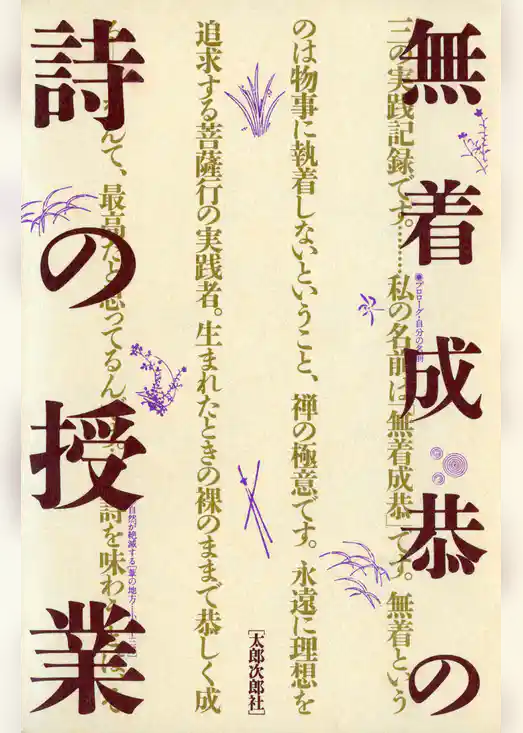 無着成恭の
詩の授業
三の実践記録です。………私の名前は「無着成恭」です。無着という
のは物事に執着しないということ、禅の極意です。永遠に理想を
追求する菩薩行の実践者。生まれたときの裸のままで恭しく成
んて、最高だと思ってるんです。詩を味わ
プロローグ・自分の名前
自然が絶滅する[葦の地方
[太郎次郎社]